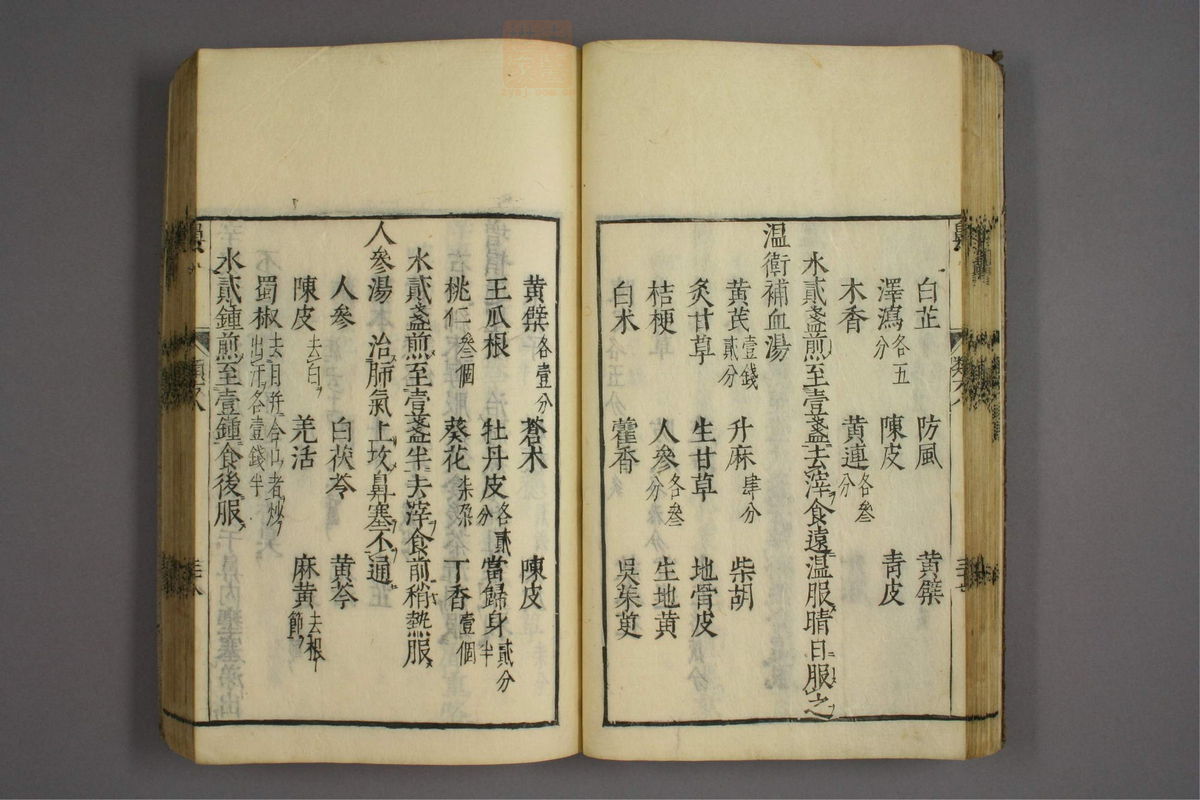 白芷 防風 黃檗
澤瀉各五分 陳皮 青皮
木香 黃連各叄分
水貳盞煎至壹盞去滓食遠温服晴日服之
温衛補血湯
黃芪壹錢貳分 升麻肆分 柴胡
炙甘草 生甘草 地骨皮
桔梗 人參各叄分 生地黃
白术 藿香 吳茱萸
黃檗各壹分 蒼术 陳皮
王瓜根 牡丹皮各貳分 當歸身貳分半
桃仁叄個 葵花柒朶 丁香壹個
水貳盞煎至壹盞半去滓食前稍熱服
人參湯 治肺氣上攻鼻塞不通
人參 白茯苓 黃芩
陳皮去白 羌活 麻黃去根節
蜀椒去目并合口者炒出汗各壹錢半
水貳鍾煎至壹鍾食後服